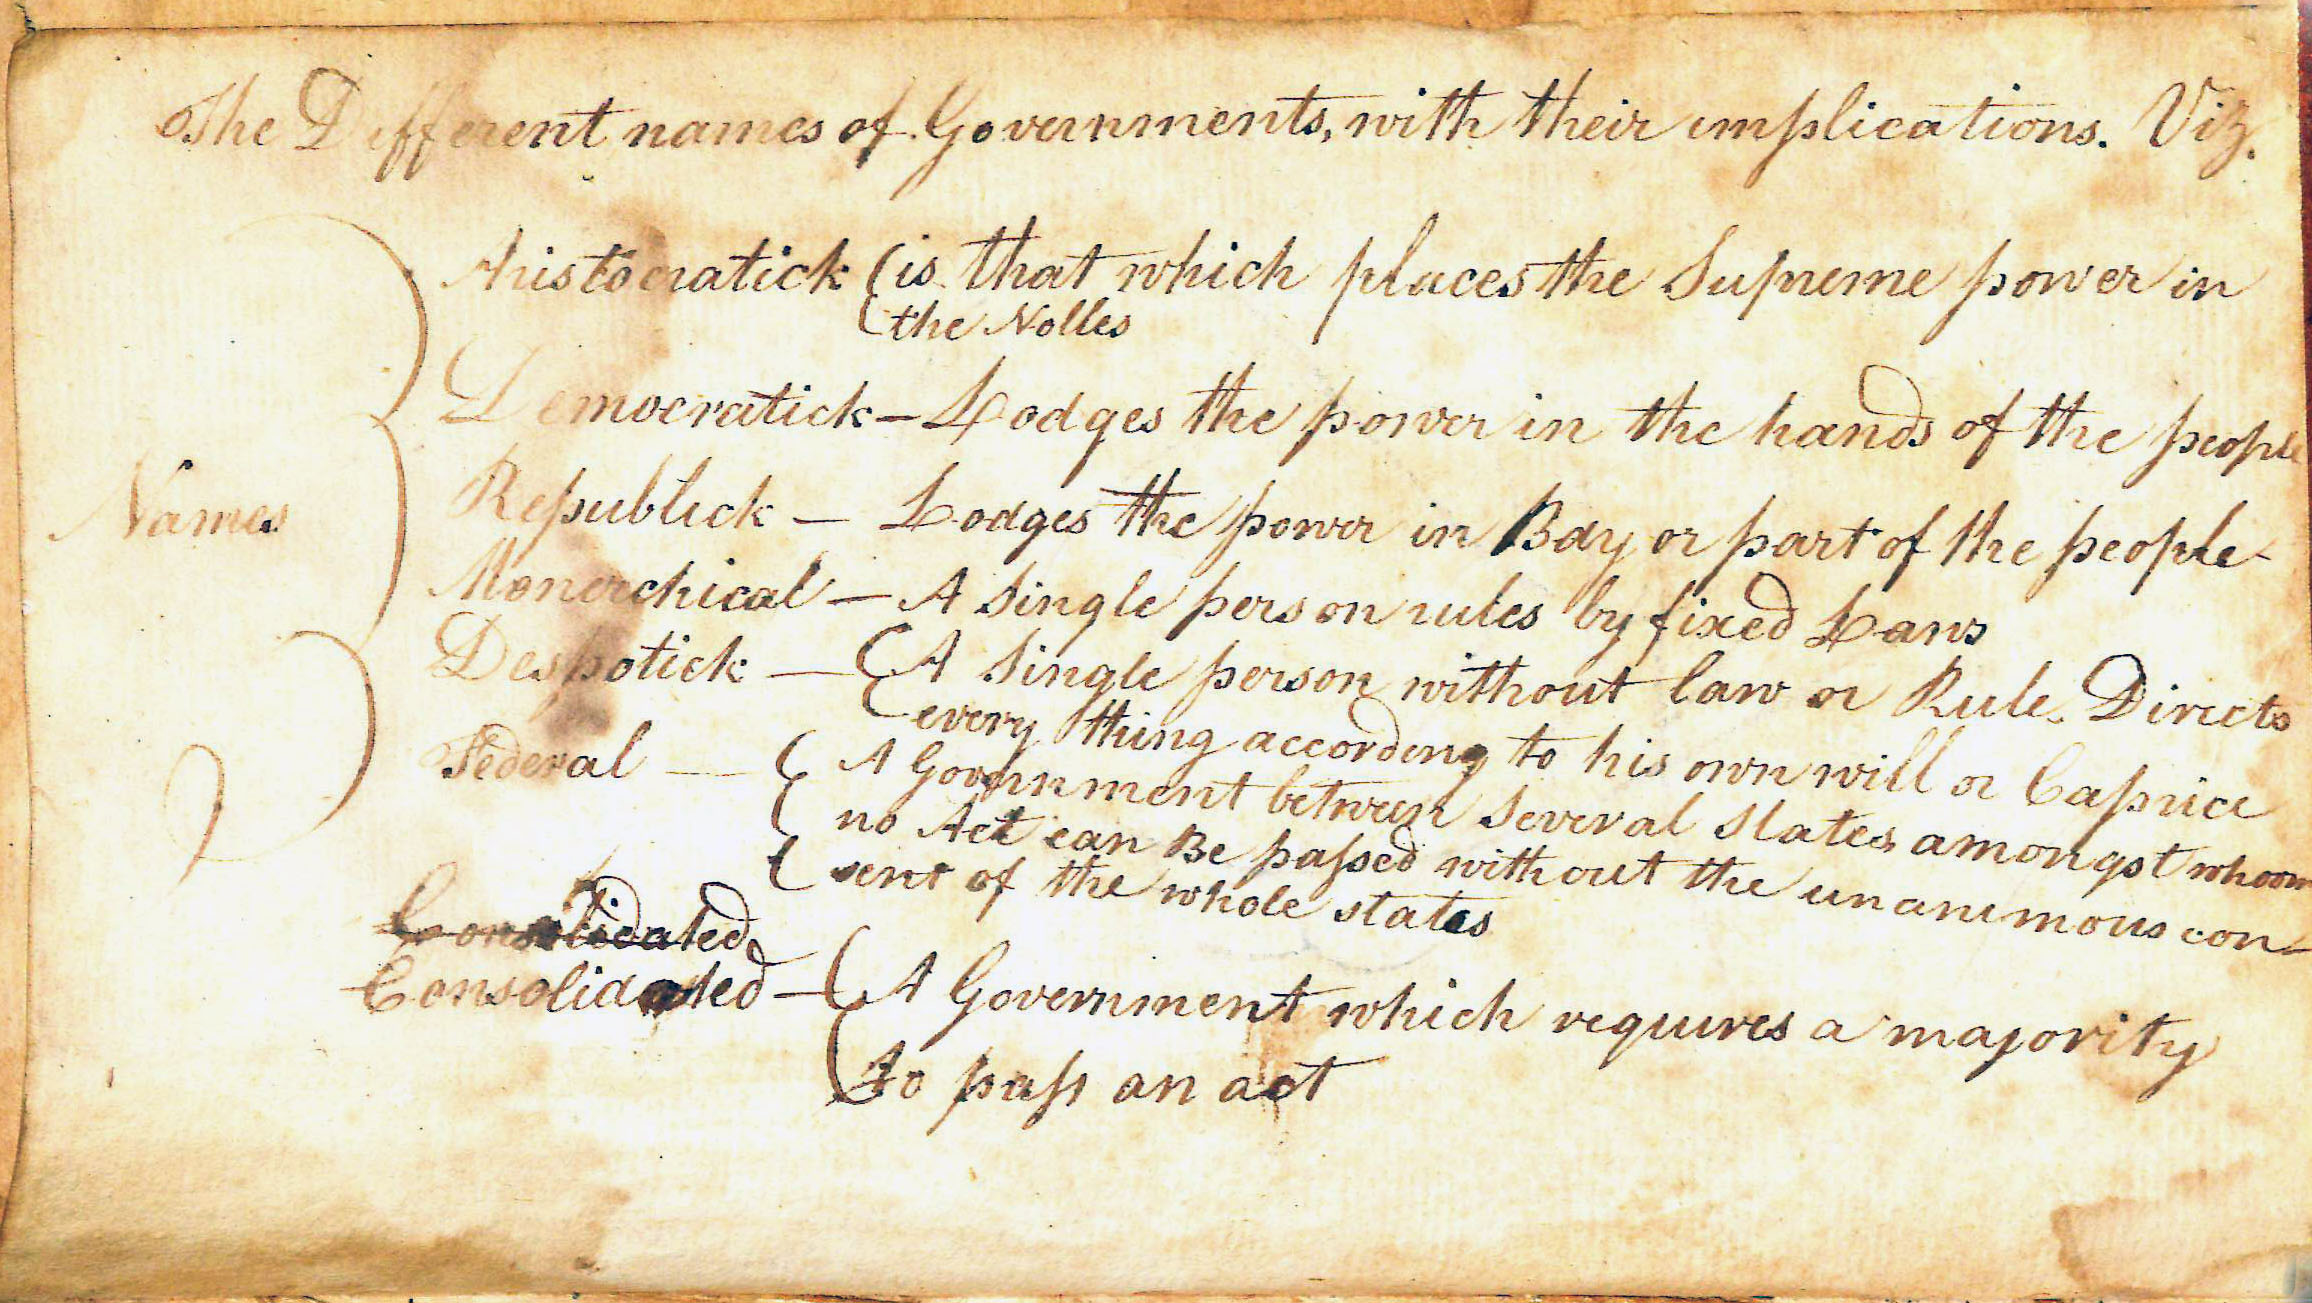 The Different names of Governments, with their implications. Viz.
Aristocratick is that which places the Supreme power in
the Nolles
Democratick – Lodges the power in the hands of the people
Names
Republick – Lodges the power in Bdy or part of the people
Monerchical – A Single person rules by fixed Laws
Despotick – A Single person without law or Rule. Directs
every thing according to his own will or Caprice
Federal – A Government between Several States amongst whoom
no Act can Be passed without the unanimous con-
sent of the whole states
Consolidated
Consolidated – A Government which requires a majority
to pass an act